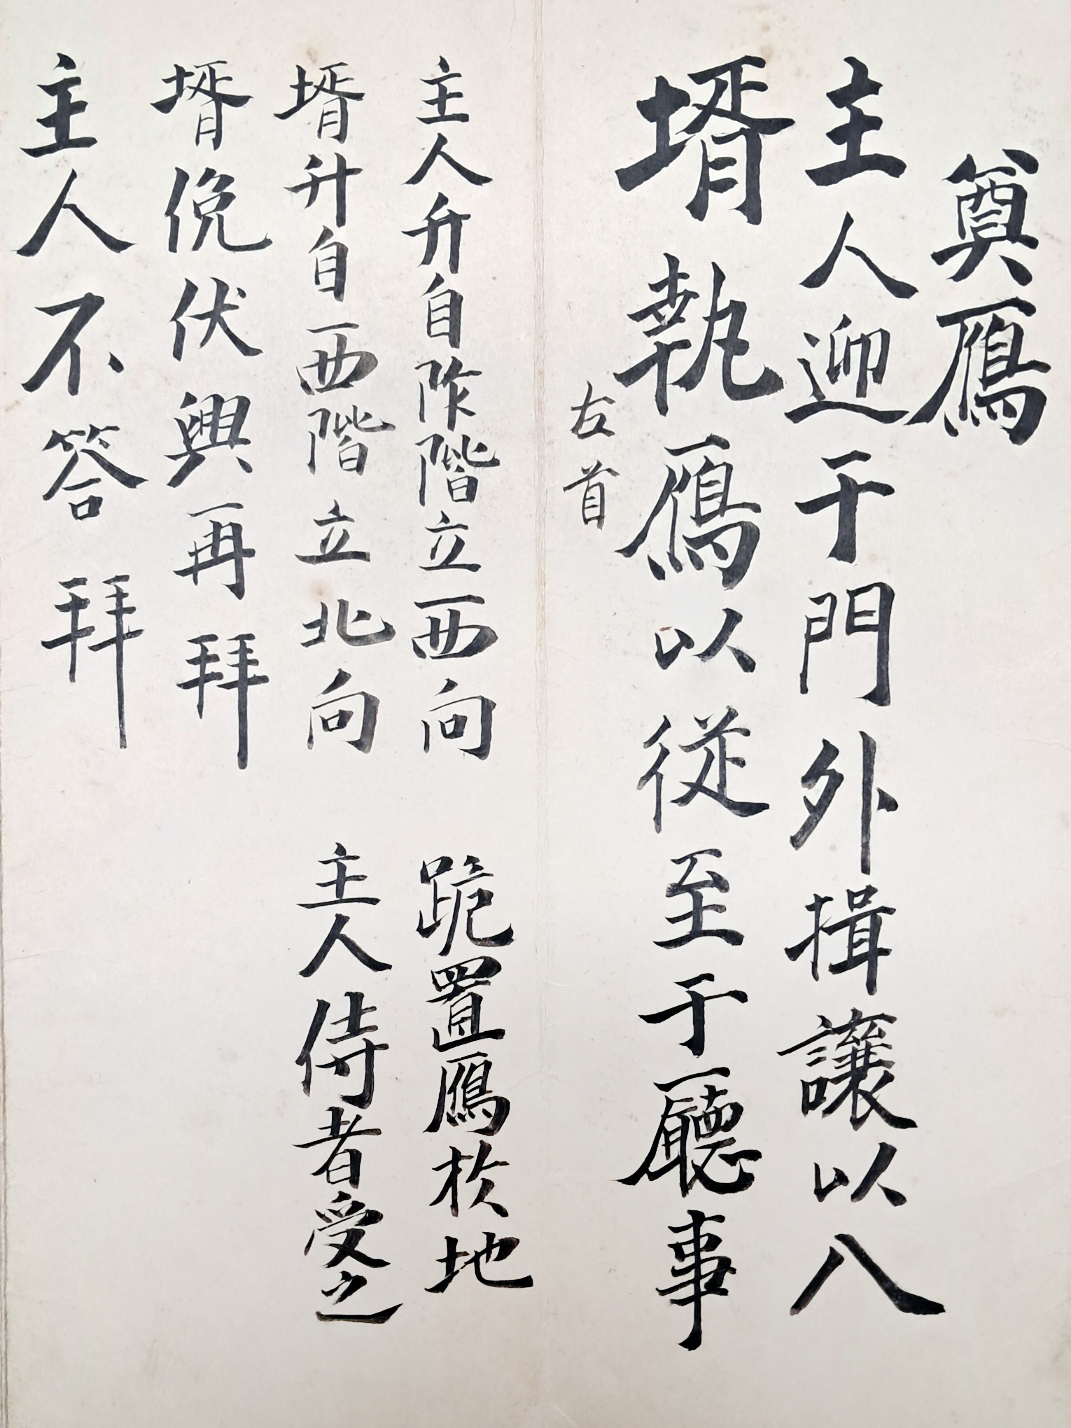 奠鴈
主人迎于門外揖讓以入
壻執鴈以從至于廳事
左首
主人升自阼階立西向
跪置鴈於地
壻升自西階立北向
主人侍者受之
壻俛伏興再拜
主人不答拜